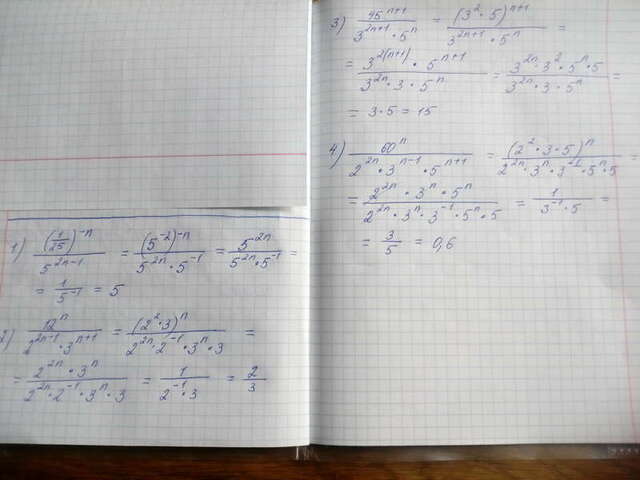 1) (1/25)^-n / 5^(2n-1) = (5^-2)^-n / (5^2n · 5^-1) = 5^2n / (5^2n · 5^-1) =
= 1 / 5^-1 = 5
2) 12^n / (2^(2n-1) · 3^(n+1)) = (2^2 · 3)^n / (2^2n · 2^-1 · 3^n · 3) =
= (2^2n · 3^n) / (2^2n · 2^-1 · 3^n · 3) = 1 / (2^-1 · 3) = 2/3
3) 45^(n+1) / (3^(2n+1) · 5^n) = (3^2 · 5)^(n+1) / (3^(2n+1) · 5^n) =
= (3^(2(n+1)) · 5^(n+1)) / (3^2n · 3 · 5^n) = (3^2n · 3^2 · 5^n · 5) / (3^2n · 3 · 5^n) =
= 3 · 5 = 15
4) 60^n / (2^2n · 3^(n-1) · 5^(n+1)) = (2^2 · 3 · 5)^n / (2^2n · 3^n · 3^-1 · 5^n · 5) =
= (2^2n · 3^n · 5^n) / (2^2n · 3^n · 3^-1 · 5^n · 5) = 1 / (3^-1 · 5) =
= 3/5 = 0,6